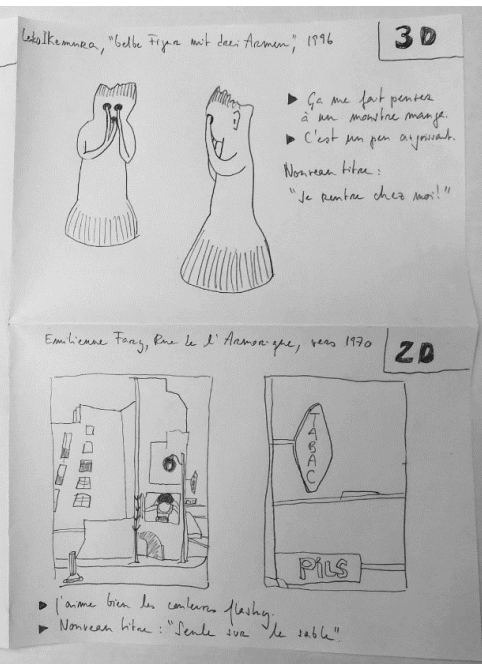 Leiko Ikemura, "Gelbe Figur mit drei Armen", 1996
3D
► Ça me fait penser
à un monstre manga.
► C'est un peu angoissant.
Nouveau titre :
"Je rentre chez moi!"
Emilienne Farny, Rue de l'Armorique, vers 1970
2D
TABAC
PILS
► J'aime bien les couleurs flashy.
► Nouveau titre : "Seule sur le sable".